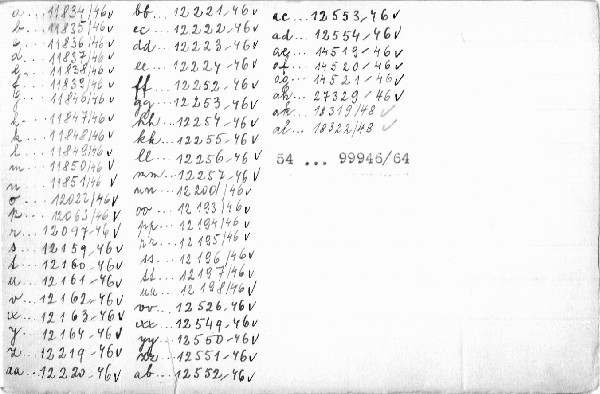 a...11834/46 ✓
b...11835/46 ✓
c...11836/46 ✓
d...11837/46 ✓
e...11838/46 ✓
f...11839/46 ✓
g...11846/46 ✓
h...11847/46 ✓
k...11848/46 ✓
l...11849/46 ✓
m...11850/46 ✓
n...11851/46 ✓
o...12022/46 ✓
p...12063/46 ✓
r...12097-46 ✓
s...12159-46 ✓
t...12160-46 ✓
u...12161-46 ✓
v...12162-46 ✓
x...12163-46 ✓
y...12164-46 ✓
z...12219-46 ✓
aa...12220-46 ✓
bb...12221-46 ✓
cc...12222-46 ✓
dd...12223-46 ✓
ee...12224-46 ✓
ff...12252-46 ✓
gg...12253-46 ✓
hh...12254-46 ✓
kk...12255-46 ✓
ll...12256-46 ✓
mm...12257-46 ✓
nn...12200/46 ✓
oo...12193/46 ✓
pp...12194/46 ✓
rr...12195/46 ✓
ss...12196/46 ✓
tt...12197/46 ✓
uu...12198/46 ✓
vv...12526-46 ✓
xx...12549-46 ✓
yy...12550-46 ✓
zz...12551-46 ✓
ab...12552-46 ✓
ac...12553-46 ✓
ad...12554-46 ✓
ae...14519-46 ✓
af...14520-46 ✓
ag...14521-46 ✓
ah...27329-46 ✓
ak...18319/48 ✓
al...18322/48 ✓
54 ... 99946/64